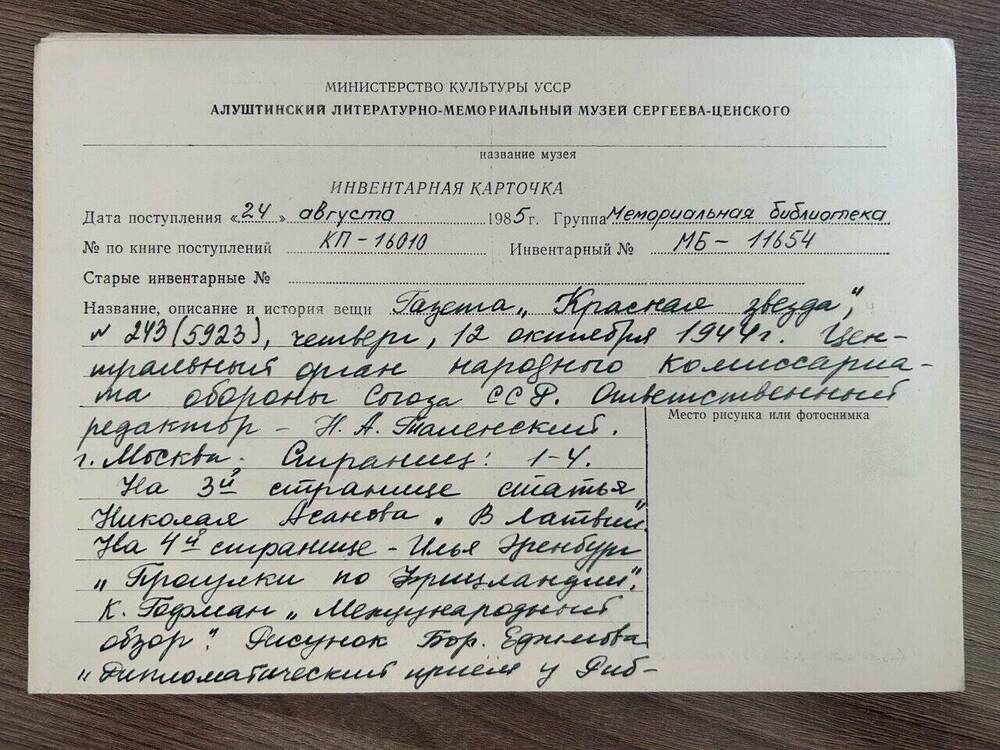 МИНИСТЕРСТВО КУЛЬТУРЫ УССР
АЛУШТИНСКИЙ ЛИТЕРАТУРНО-МЕМОРИАЛЬНЫЙ МУЗЕЙ СЕРГЕЕВА-ЦЕНСКОГО
название музея
ИНВЕНТАРНАЯ КАРТОЧКА
Дата поступления «24» августа 1985 г. Группа Мемориальная библиотека
№ по книге поступлений КП-16010 Инвентарный № МБ-11654
Старые инвентарные №
Название, описание и история вещи Газета „Красная звезда",
№ 243 (5923), четверг, 12 октября 1944г. Цен-
тральный орган народного комиссариа-
та обороны Союза ССР. Ответственный
Место рисунка или фотоснимка
редактор - Н. А. Таленский.
г. Москва. Страниц: 1-4.
На 3й странице статья
Николая Асанова „В Латвии".
На 4й странице - Илья Эренбург
„Прогулки по Фрицландии".
К. Гофман „Международный
обзор". Рисунок Бор. Ефимова
„Дипломатический прием у Риб-